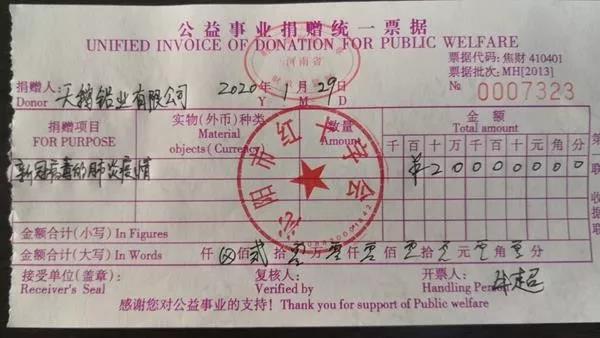 公益事业捐赠统一票据
UNIFIED INVOICE OF DONATION FOR PUBLIC WELFARE
河南省
票据代码: 焦财 410401
捐赠人: 天鹅铝业有限公司 2020年1月29日 票据批次: MH[2013]
Donor Y M D № 0007323
捐赠项目 实物(外币)种类 数量 金额
FOR PURPOSE Material objects (Currency) Amount Total amount
千百十万千百十元角分
新冠病毒的肺炎疫情 20000000
阳市红十字会
金额合计(小写) In Figures
金额合计(大写) In Words 仟 佰贰拾零万零仟零佰零拾零元零角零分
接受单位(盖章): 复核人: 开票人:
Receiver's Seal Verified by Handling Person
感谢您对公益事业的支持! Thank you for support of Public welfare
第
联
收
据
联